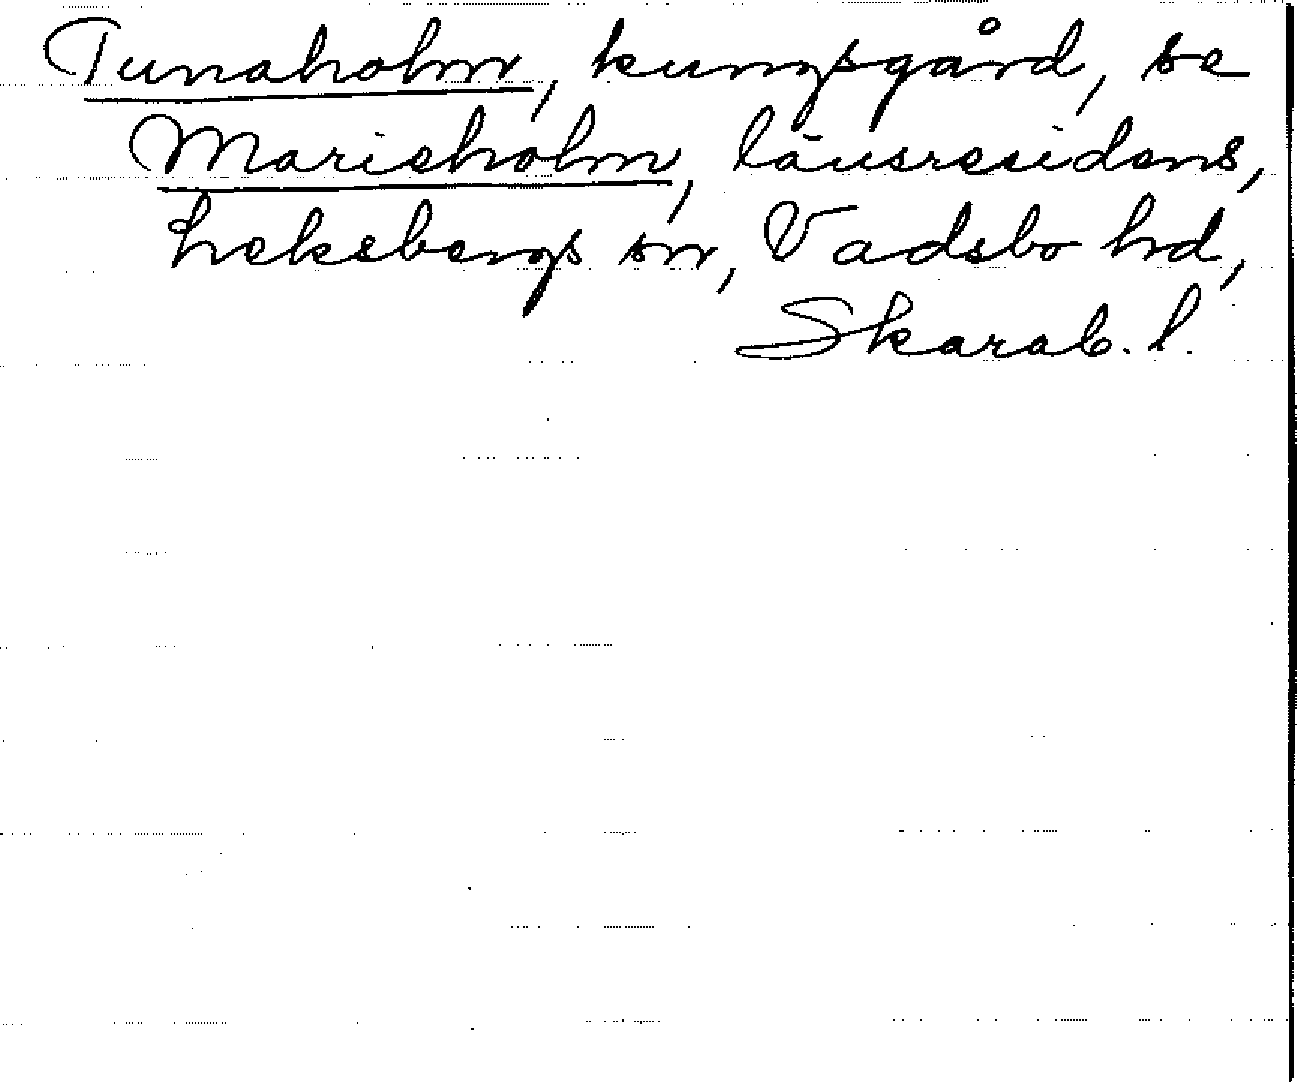 Tunaholm, kungsgård, se
Marieholm, länsresidens,
Leksbergs sn, Vadsbo hd,
Skarab. l.